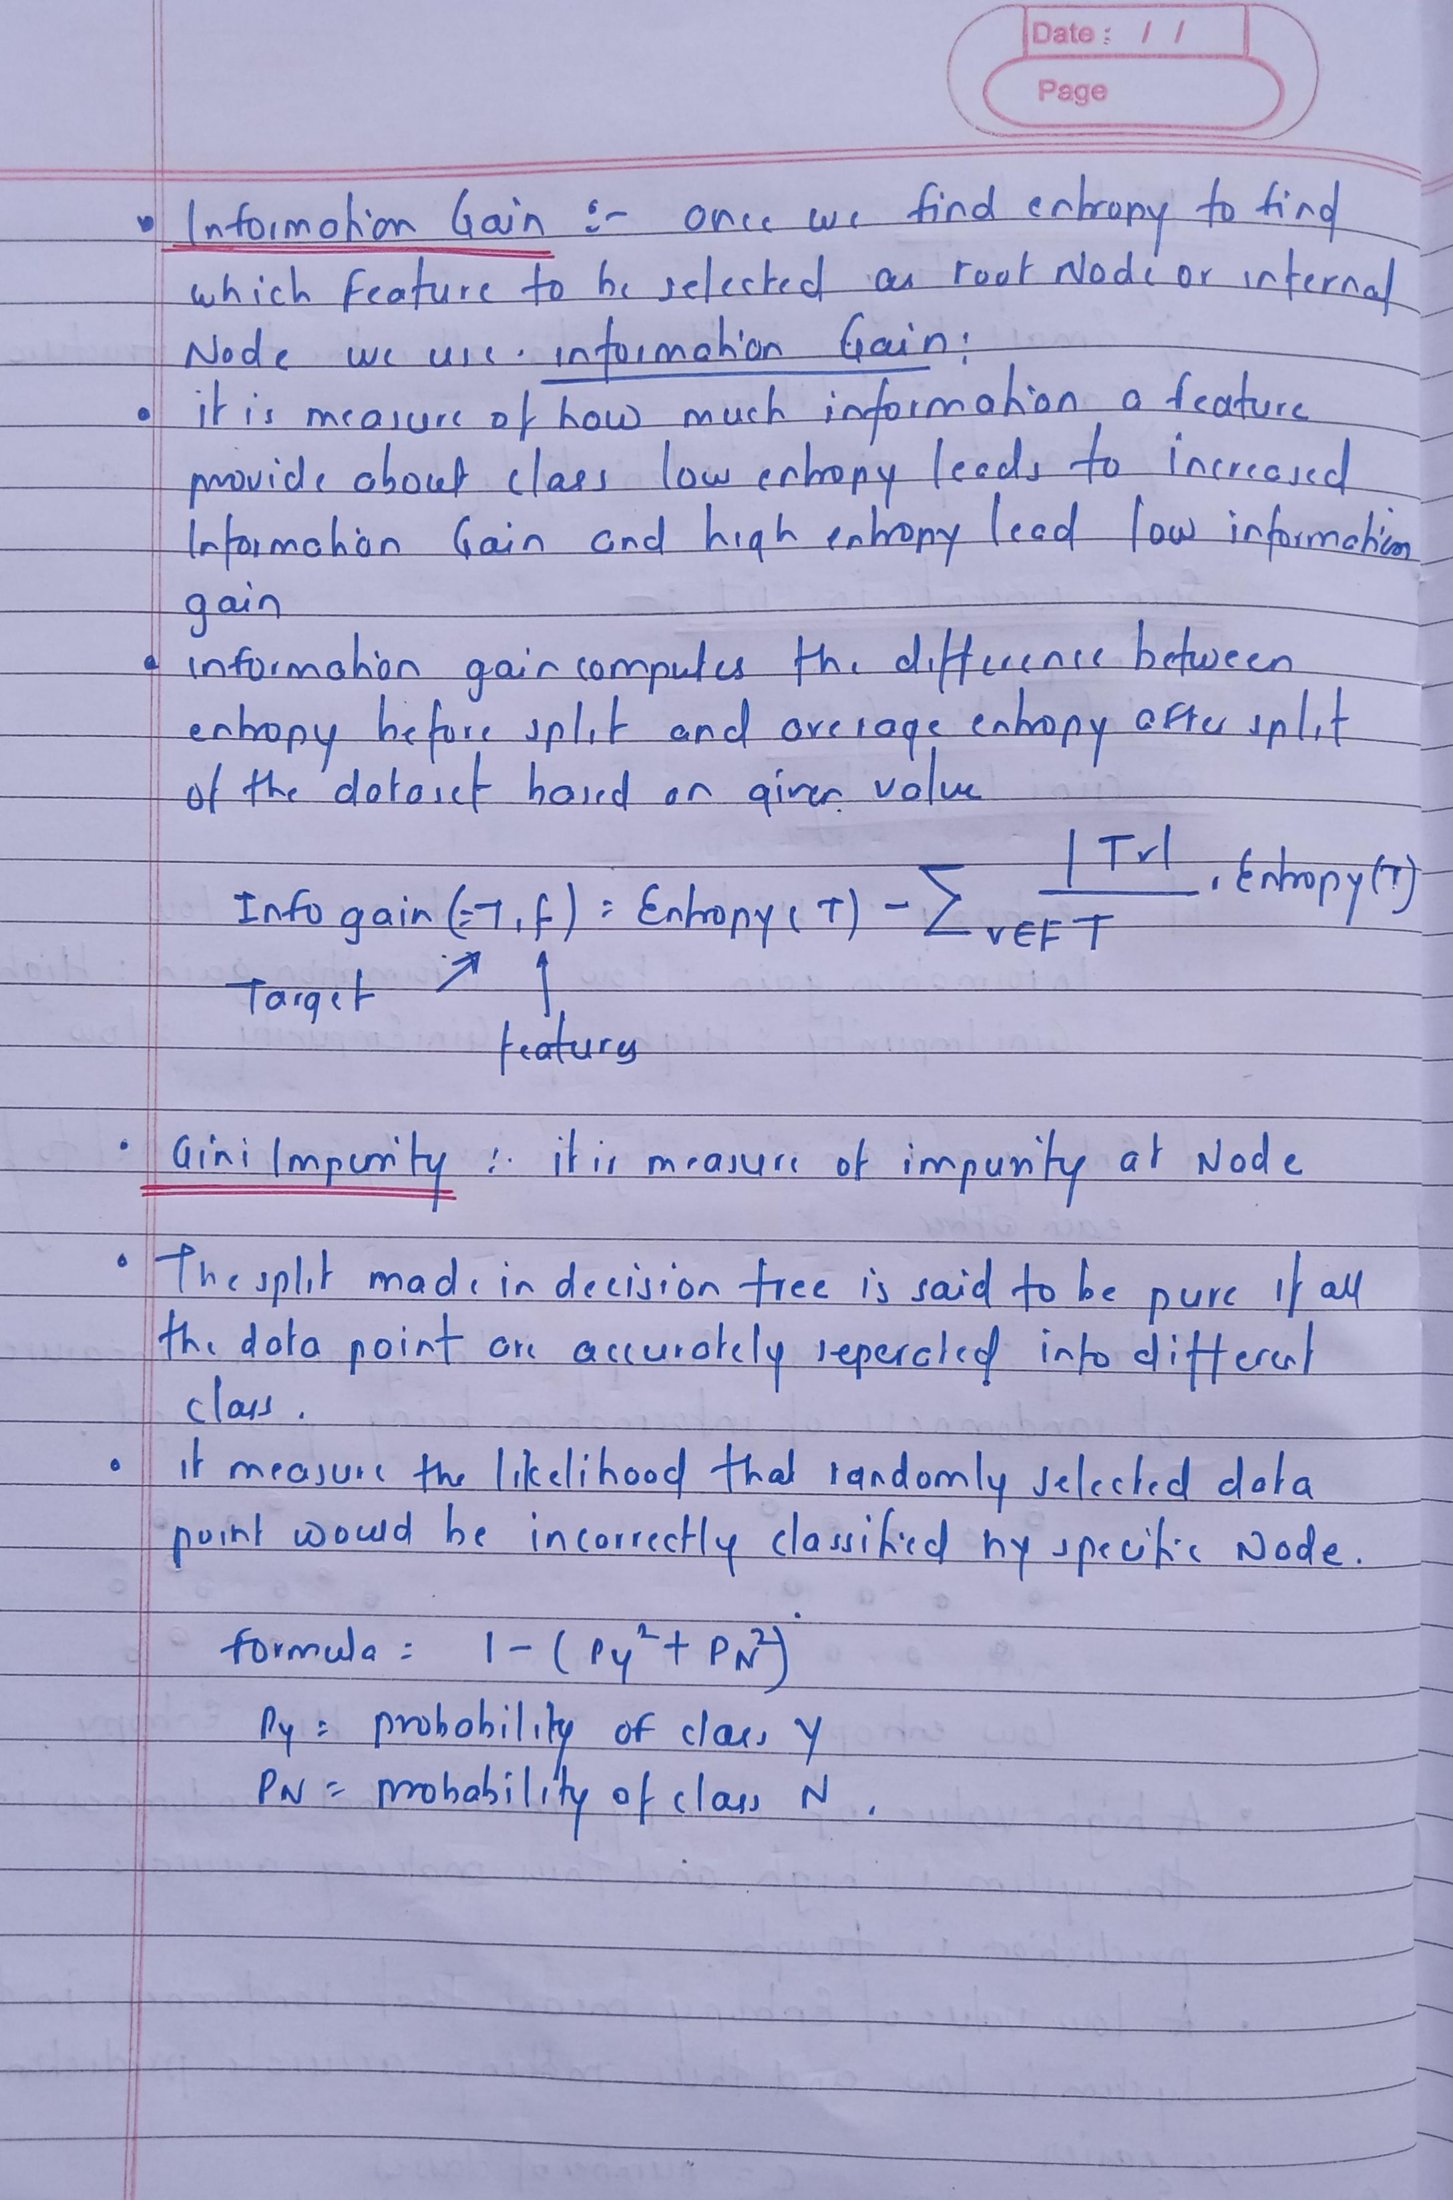 Date : / /
Page
Information Gain :- once we find entropy to find
which feature to be selected as root Node or internal
Node we use . information Gain :
it is measure of how much information a feature
provide about class low entropy leads to increased
Information Gain and high entropy lead low information
gain
information gain computes the difference between
entropy before split and average entropy after split
of the dataset based on given value
|Tv|
Info gain (=T, F) = Entropy (T) - ∑ v∈F T . Entropy (T)
Target
features
Gini Impurity :- it is measure of impurity at Node
The split made in decision tree is said to be pure if all
the data point are accurately seperated into different
class .
it measure the likelihood that randomly selected data
point would be incorrectly classified by specific Node .
formula = 1 - ( Py² + PN² )
Py = probability of class Y
PN = probability of class N .